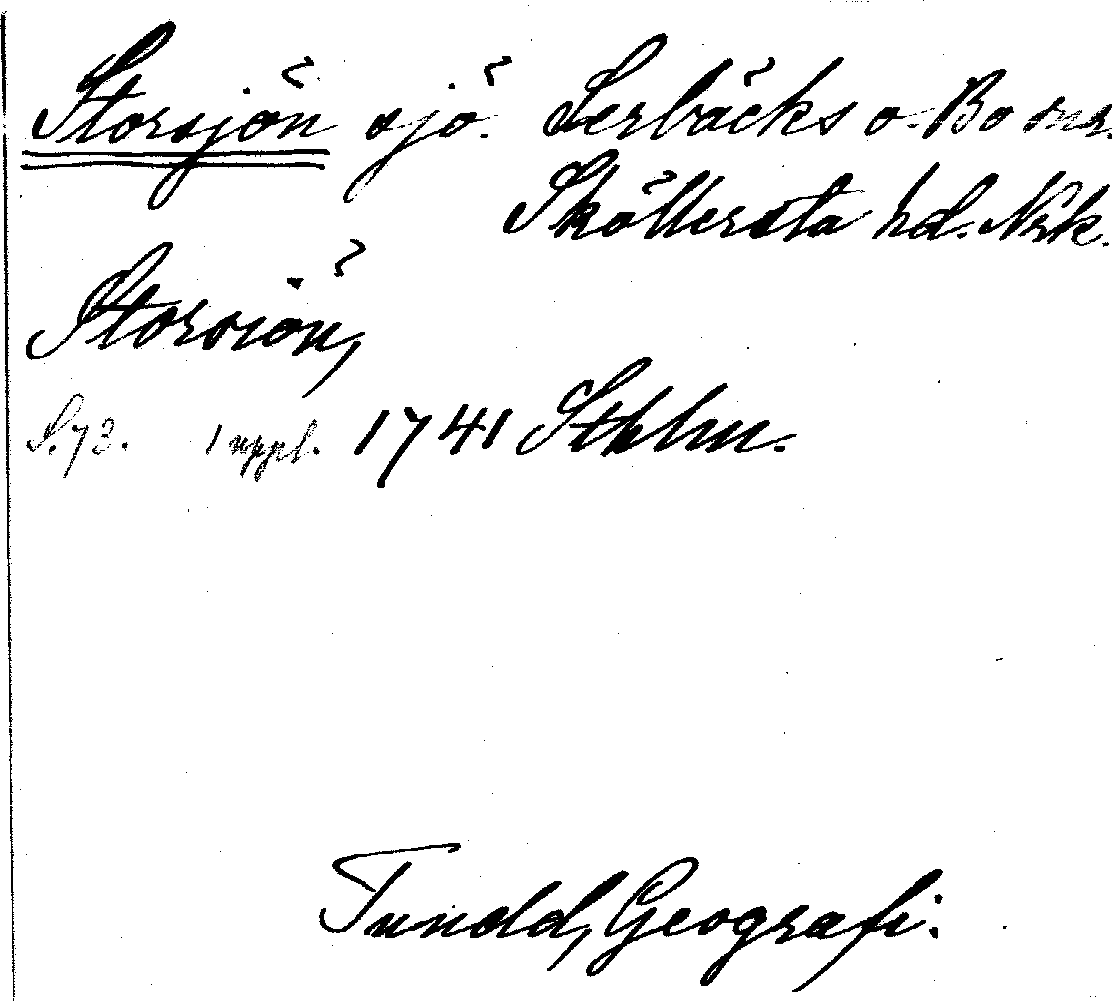 Storsjön sjö. Lerbäcks o. Bo snr.
Sköllersta hd. Nrk.
Storsiön,
S. 73. 1 uppl. 1741 Sthlm.
Tuneld, Geografi.